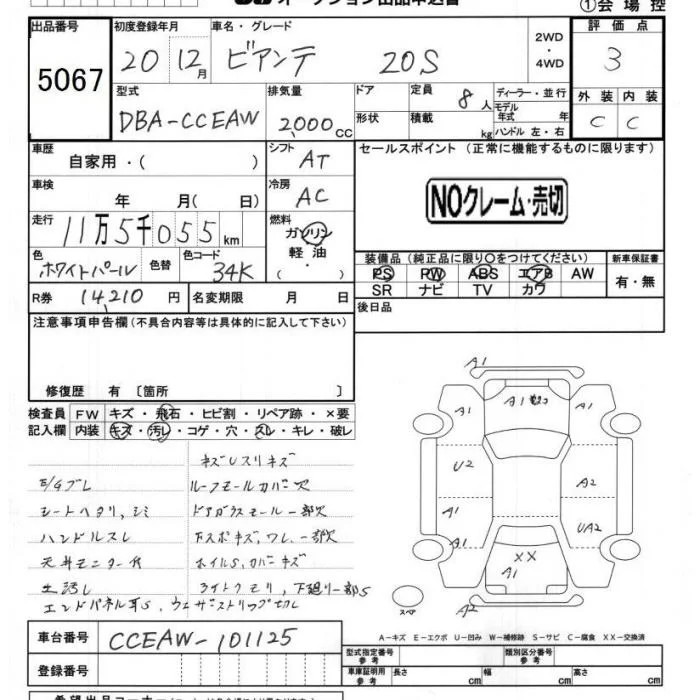 オークション出品申込書
①会場控
出品番号 初度登録年月 車名・グレード 2WD・4WD 評価点
5067 20 12月 ビアンテ 20S 3
型式 排気量 ドア 定員 8人 ディーラー・並行 外装 内装
DBA-CCEAW 2000cc 形状 積載 kg モデル年式 年 ハンドル 左・右 C C
車歴 自家用・( ) シフト AT セールスポイント (正常に機能するものに限ります)
車検 年 月( 日) 冷房 AC NOクレーム・売切
走行 11万5千055km 燃料 ガソリン 軽油 ( ・ )
装備品(純正品に限り○をつけてください) 新車保証書
色 ホワイトパール 色替 色コード 34K PS PW ABS エアB AW 有・無
SR ナビ TV カワ
R券 14,210円 名変期限 月 日 後日品
注意事項申告欄(不具合内容等は具体的に記入して下さい)
修復歴 有 〔箇所 〕
検査員記入欄 FW キズ・飛石・ヒビ割・リペア跡・×要
内装 キズ・汚レ・コゲ・穴・スレ・キレ・破レ
キズUスリキズ
E/Gブレ ルーフモールカバー欠
シートヘタリ,シミ ドアガラスモール一部欠
ハンドルスレ Fスポキズ,ワレ,一部欠
天井モニター付 ホイルS,カバーキズ
ライトクモリ,下廻り一部S
エンドパネル耳S,ウェザーストリップ切レ
A1
A1 A1 A1
U2 A2
A1 UA2
A1 XX A1
スペア A2
A-キズ E-エクボ U-凹み W-補修跡 S-サビ C-腐食 XX-交換済
車台番号 CCEAW-101125
登録番号
型式指定番号 参考 類別区分番号 参考
車庫証明用 参考 長さ 幅 高さ